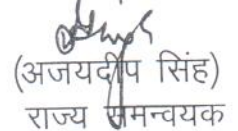 (अजयदीप सिंह)
राज्य समन्वयक